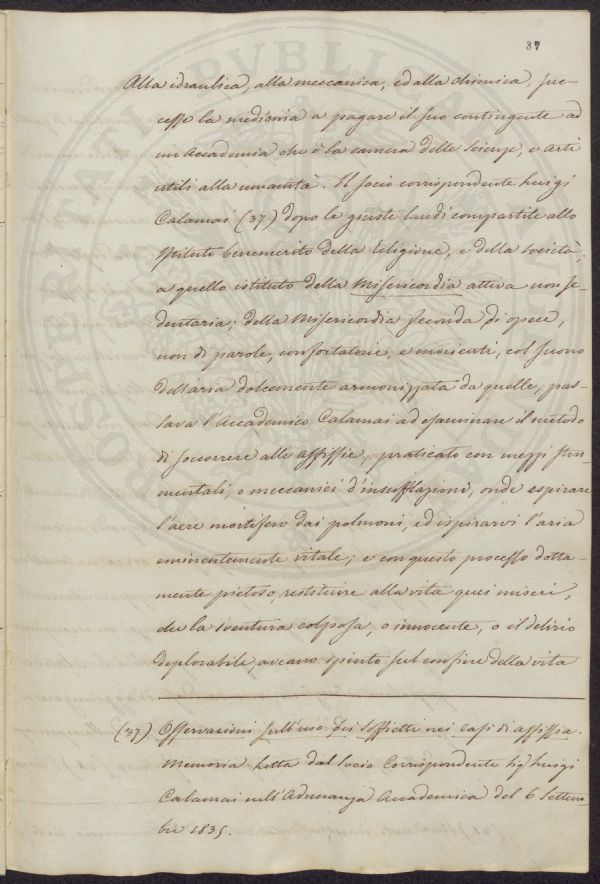 87
Alla idraulica, alla meccanica, ed alla chimica, suc-
cesse la medicina a pagare il suo contingente ad
un Accademia che è la camera delle Scienze, e arti
utili alla umanità. Il Socio corrispondente Luigi
Calamai (37) dopo le giuste laudi compartite allo
Istituto benemerito della Religione, e della società,
a quello istituto della Misericordia attiva non se-
dentaria; della Misericordia feconda di opere,
non di parole, confortatorie, e morienti, col suono
dell'aria dolcemente armonizzata da quelle, pas-
sava l'Accademico Calamai ad esaminare il metodo
di soccorrere alle assissie, praticato con mezzi stru-
mentali, o meccanici d'insufflazioni, onde espirare
l'aere mortifero dai polmoni, ed ispirarvi l'aria
eminentemente vitale; e con questo processo dotta-
mente pietoso, restituire alla vita quei miseri,
che la sventura colposa, o innocente, o il delirio
deplorabile, aveano spinto sul confine della vita
(37) Osservazioni sull'uso dei Soffietti nei casi di assissia.
Memoria Letta dal Socio Corrispondente Sigr Luigi
Calamai nell'Adunanza Accademica del 6 Settem-
bre 1835.
PROSPERITATI PUBLICAE